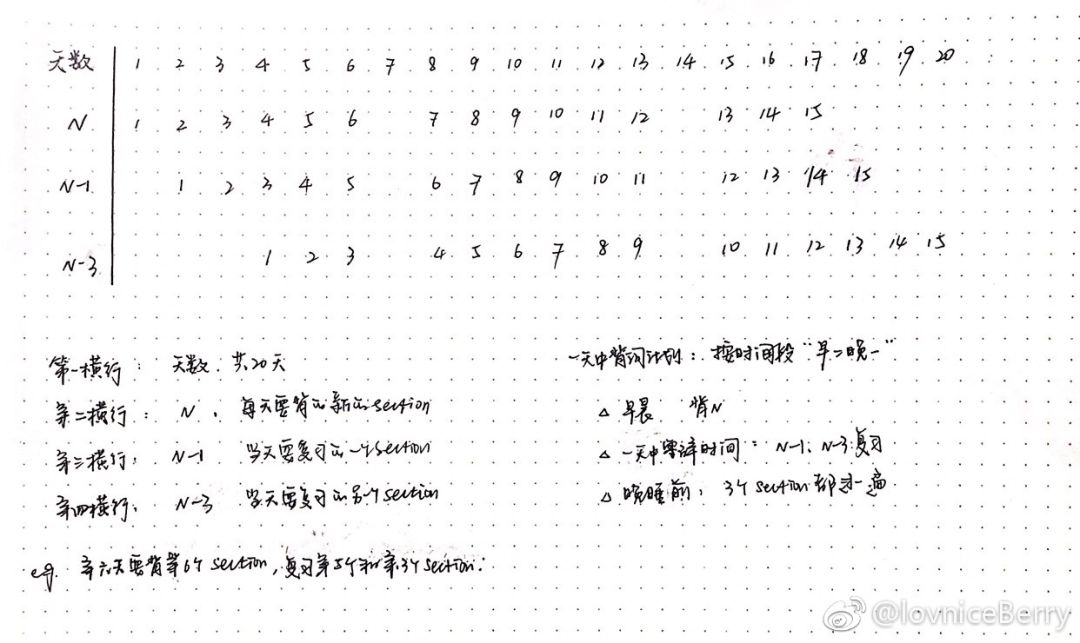 天数 1 2 3 4 5 6 7 8 9 10 11 12 13 14 15 16 17 18 19 20
N 1 2 3 4 5 6 7 8 9 10 11 12 13 14 15
N-1 1 2 3 4 5 6 7 8 9 10 11 12 13 14 15
N-3 1 2 3 4 5 6 7 8 9 10 11 12 13 14 15
第一横行: 天数. 共20天
第二横行: N, 每天要背的新的section
第三横行: N-1 当天要复习的一个section
第四横行: N-3 当天要复习的另一个section
e.g. 第六天要背第6个section, 复习第5个和第3个section.
一天中背词计划: 按时间段"早二晚一"
△ 早晨 背N
△ 一天中零碎时间: N-1、N-3复习
△ 晚睡前: 3个section都过一遍
@lovniceBerry